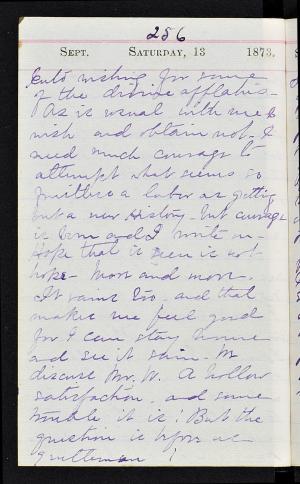 256
SEPT. SATURDAY, 13 1873.
wishing for some
of the divine afflatus—
As is usual with me to
wish and obtain not. I
need much courage to
attempt what seems so
fruitless a labor as getting
out a new History— but courage
is born and I write on—
Hope that is seen is not
hope— More and more.
It rains too, and that
makes me feel good
for I can stay home
and see it rain. We
discuss Mr. W. A hollow
satisfaction, and some
trouble it is! But the
question is before us
gentlemen !